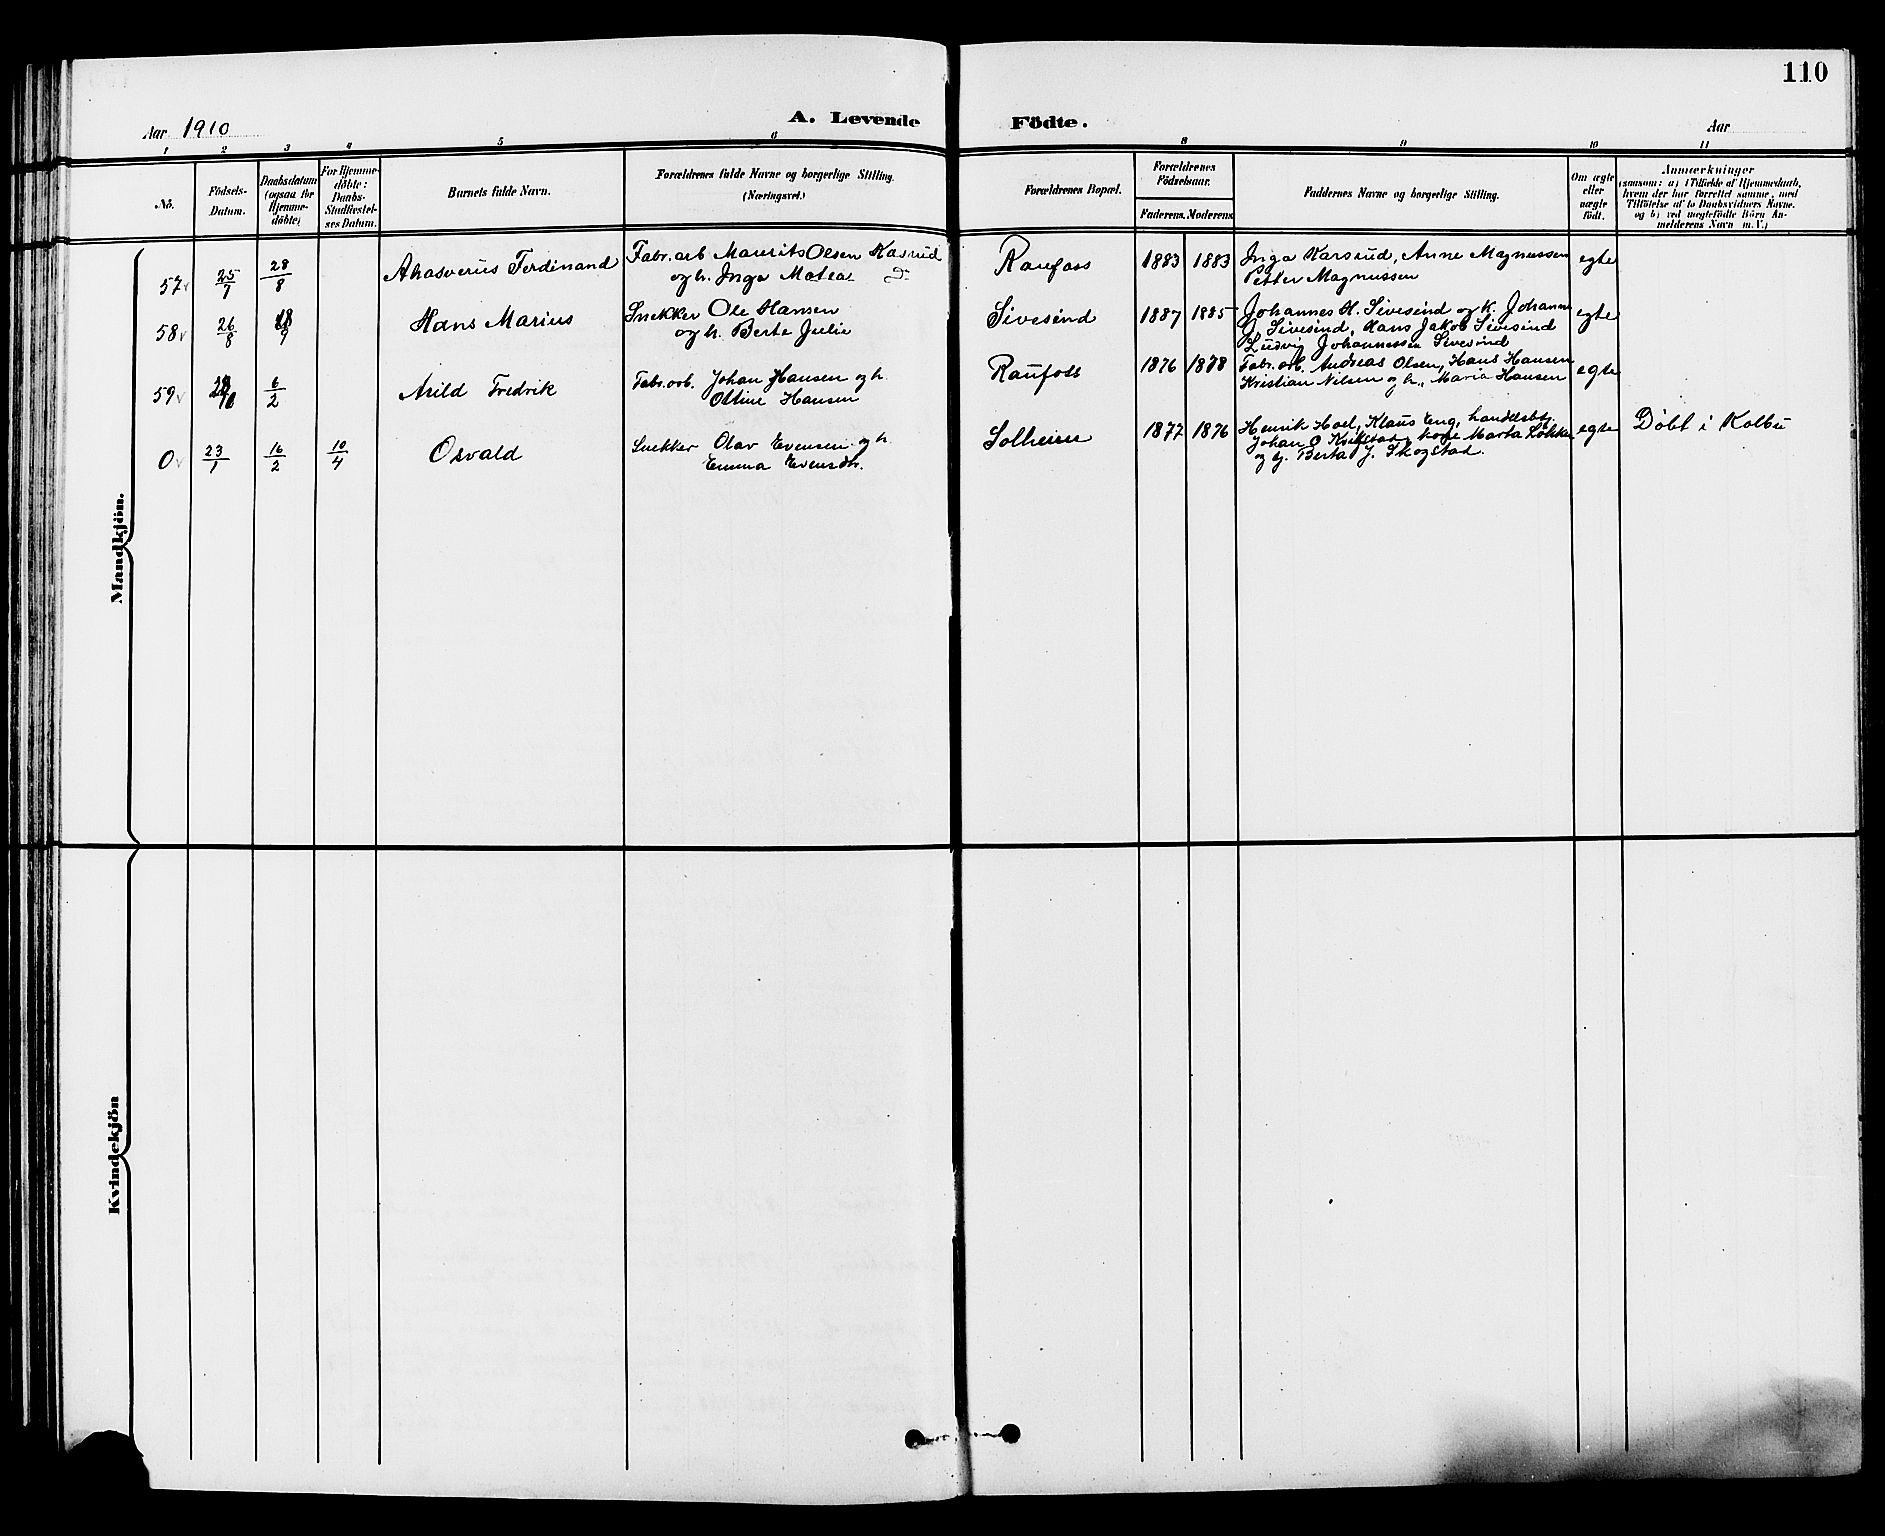 110
Aar 1910
A. Levende Födte.
Aar
1 2 3 4 5 6 8 9 10 11
No.
Födsels-Datum.
Daabsdatum (ogsaa for Hjemme-döbte)
For Hjemme-döbte: Daabs-Stadfæstel-ses Datum.
Barnets fulde Navn.
Forældrenes fulde Navne og borgerlige Stilling. (Næringsvei.)
Forældrenes Bopæl.
Forældrenes Födselsaar.
Faderens. Moderens
Faddernes Navne og borgerlige Stilling.
Om ægte eller uægte födt.
Anmærkninger
(saasom: a) i Tilfælde af Hjemmedaab, hvem der har forrettet samme, med Tilföielse af to Daabsvidners Navne. og b) ved uegtefödte Börn An-melderens Navn m. V.)
Mandkjön.
57 25/7 28/8 Ahasverus Ferdinand
Fabr. arb Maurits Olsen Kasrud
og h. Inga Matea D.
Raufoss 1883 1883
Inga Karsrud, Anne Magnussen
Petter Magnussen
egte
58 26/8 18/9 Hans Marius
Snekker Ole Hansen
og h. Berte Julie
Sivesind 1887 1885
Johannes H. Sivesind og K. Johanne
G. Sivesind, Hans Jakob Sivesind
Ludvig Johannessen Sivesind
egte
59 6/2 Arild Fredrik
Fabr. arb. Johan Hansen og h.
Ottine Hansen
Raufoss 1876 1878
Fabr. arb. Andreas Olsen, Hans Hansen
Kristian Nilsen og h., Maria Hansen
egte
0 23/1 16/2 10/4 Osvald
Snekker Olav Evensen og h.
Emma Evensdtr.
Solheim 1877 1876
Henrik Hoel, Klaus Eng, handelsbtj.
Johan O Kvikstad, kone Marta Løkke
og g. Berta J. Skogstad.
egte
Døbt i Kolbu
Kvindekjön